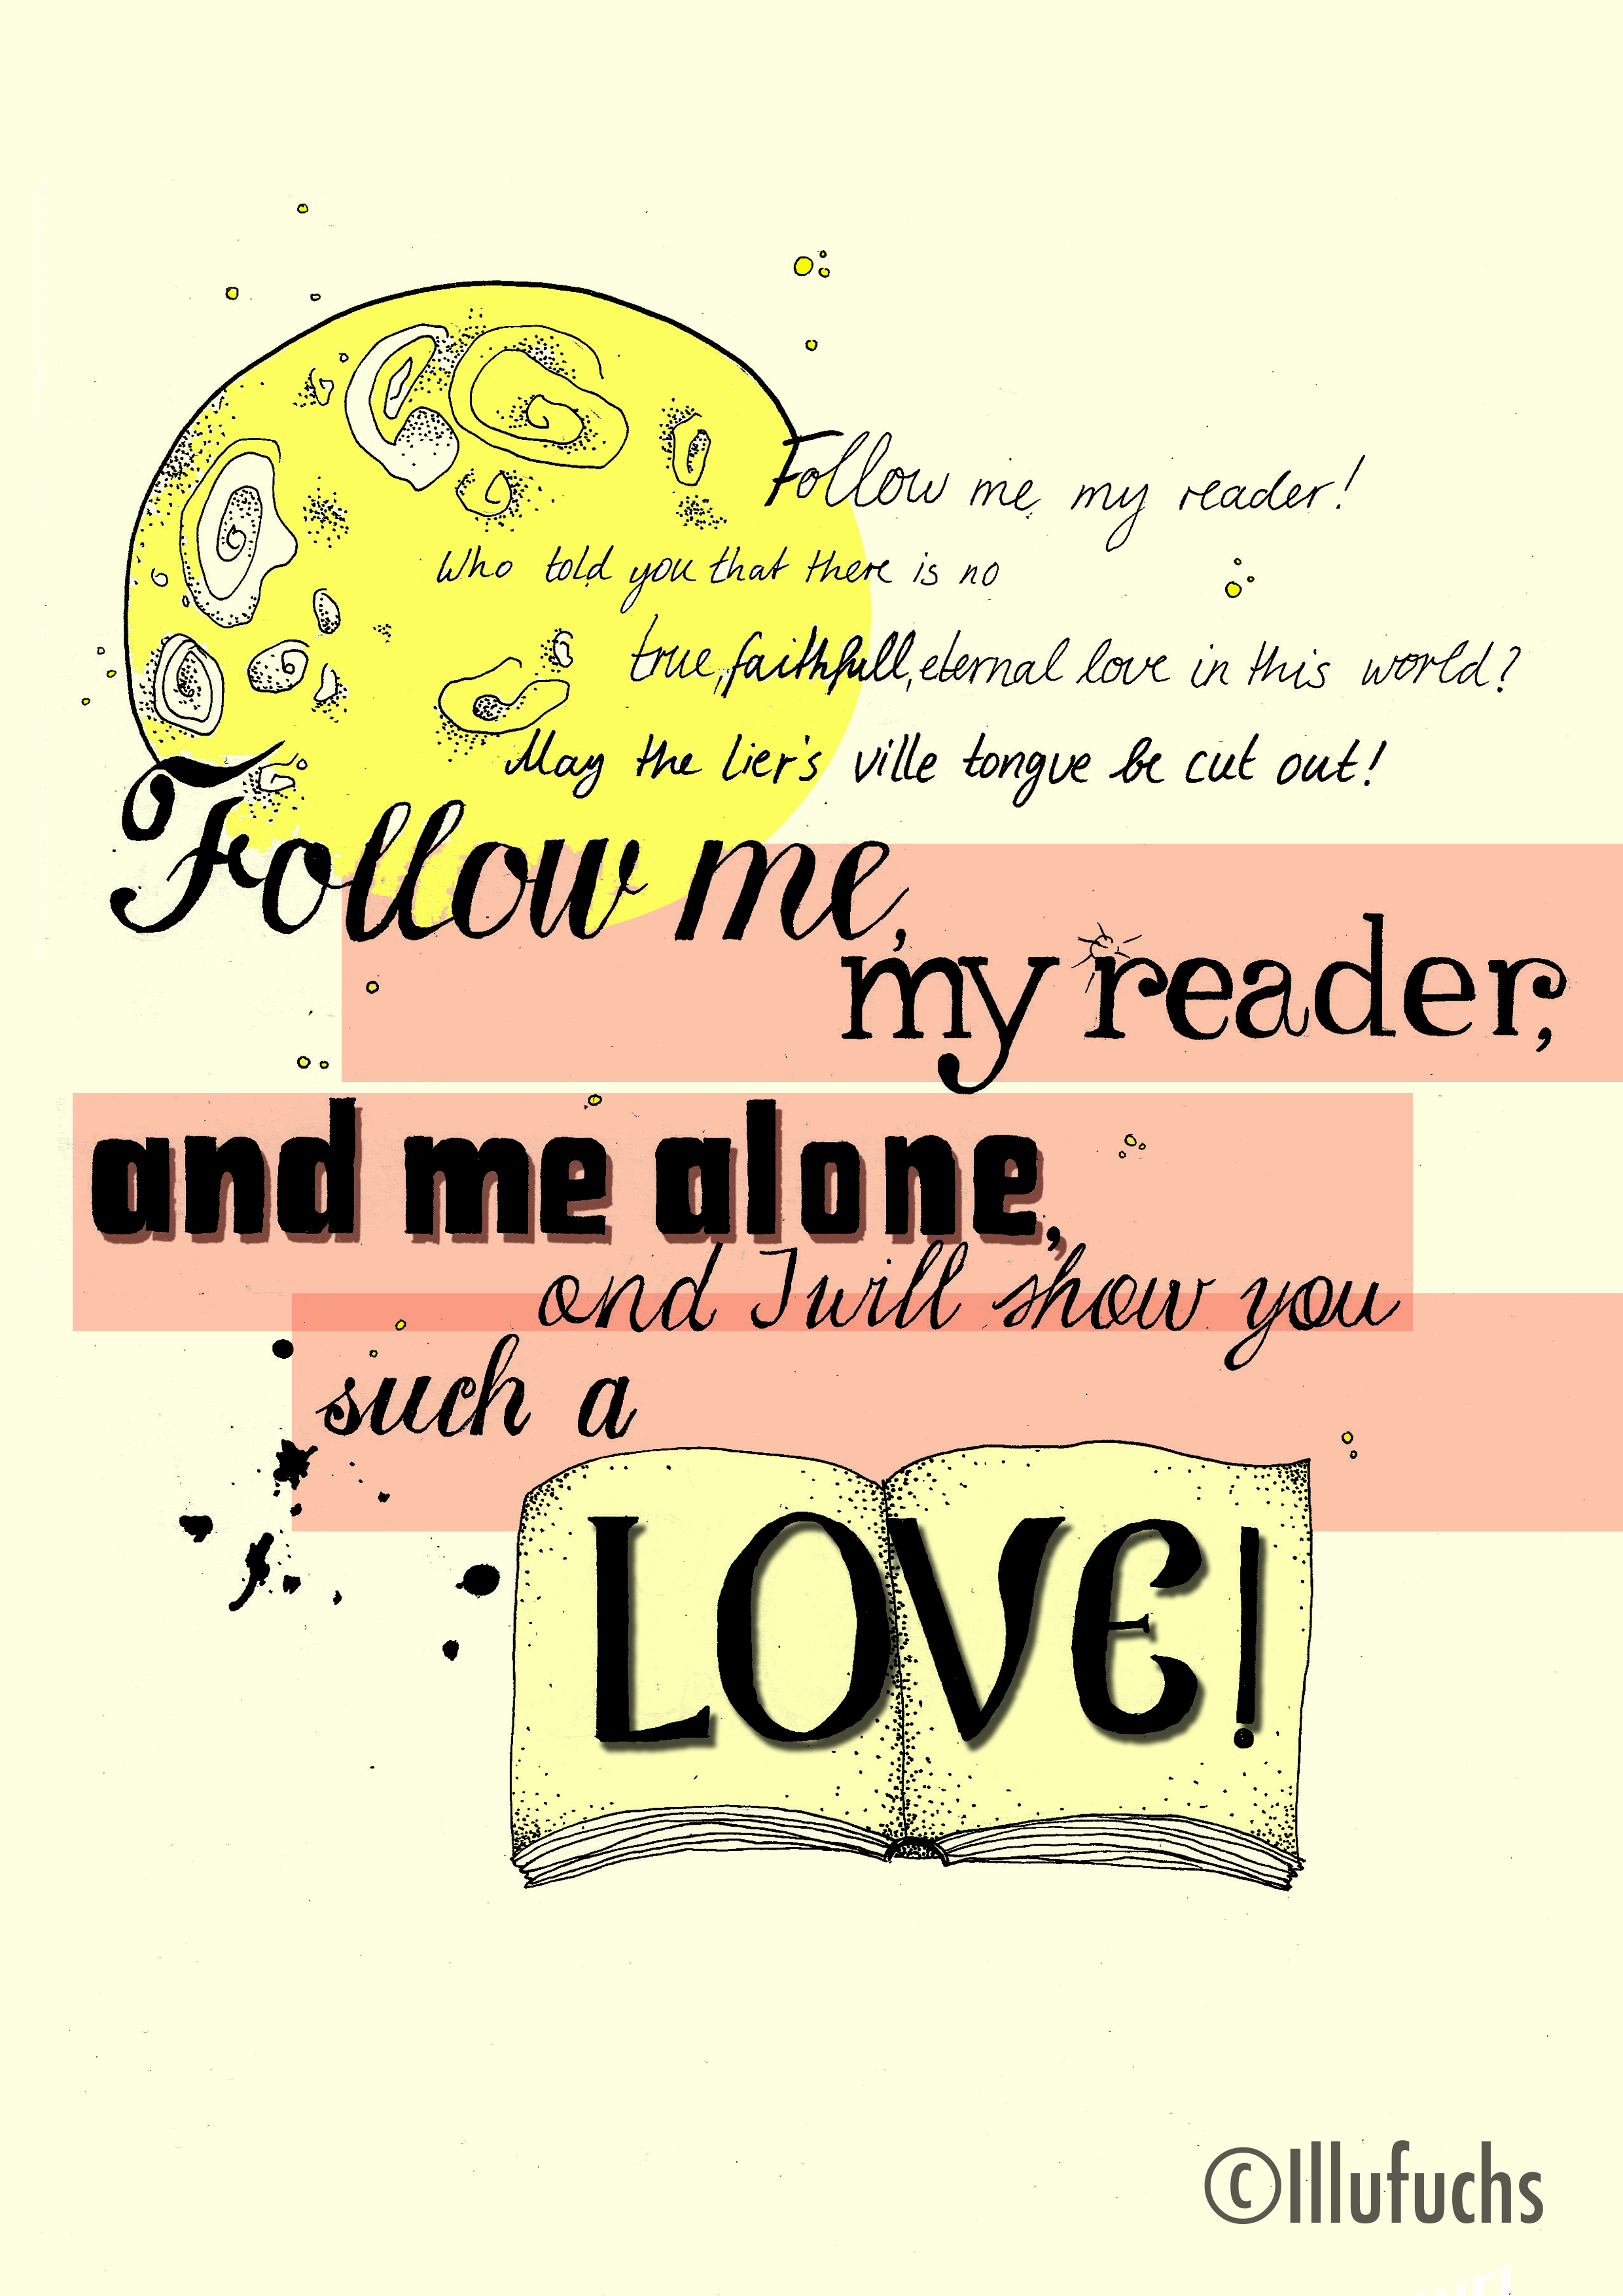 Follow me my reader!
Who told you that there is no
true, faithfull, eternal love in this world?
May the lier's ville tongue be cut out!
Follow me,
my reader,
and me alone,
and I will show you
such a
LOVE!
©Illufuchs